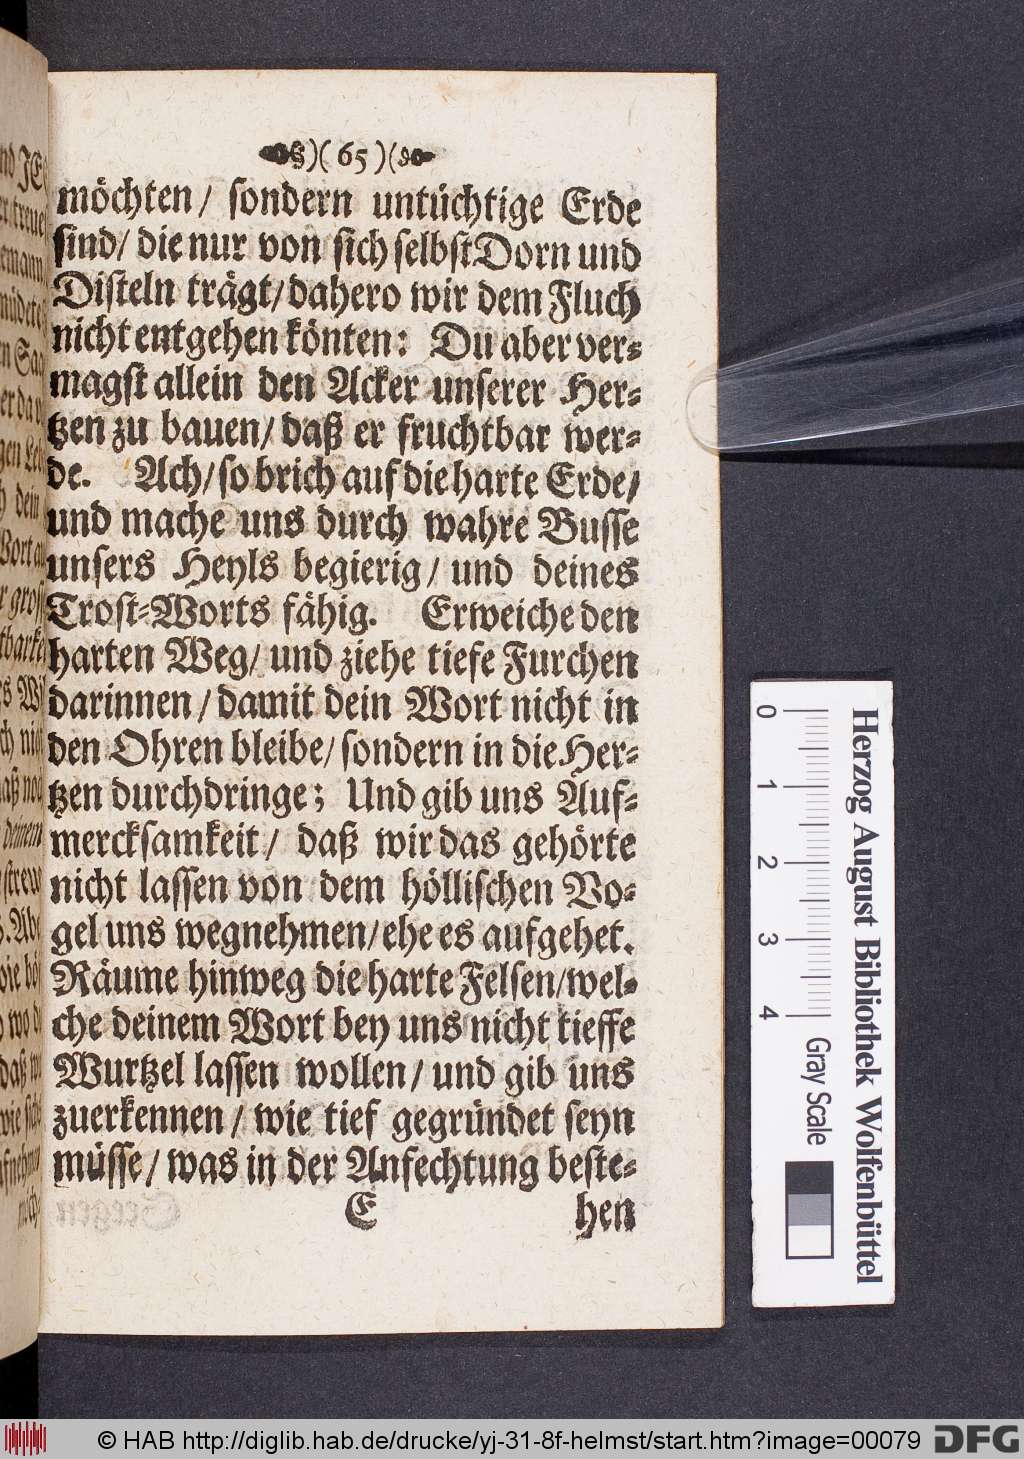 )( 65 )(
möchten/ sondern untüchtige Erde
sind/ die nur von sich selbst Dorn und
Disteln trägt/ dahero wir dem Fluch
nicht entgehen könten: Du aber ver-
magst allein den Acker unserer Her-
tzen zu bauen/ daß er fruchtbar wer-
de. Ach/ so brich auf die harte Erde/
und mache uns durch wahre Busse
unsers Heyls begierig/ und deines
Trost-Worts fähig. Erweiche den
harten Weg/ und ziehe tiefe Furchen
darinnen/ damit dein Wort nicht in
den Ohren bleibe/ sondern in die Her-
tzen durchdringe; Und gib uns Auf-
mercksamkeit/ daß wir das gehörte
nicht lassen von dem höllischen Vo-
gel uns wegnehmen/ ehe es aufgehet.
Räume hinweg die harte Felsen/ wel-
che deinem Wort bey uns nicht tieffe
Wurtzel lassen wollen/ und gib uns
zuerkennen/ wie tief gegründet seyn
müsse/ was in der Anfechtung beste-
E hen
0 1 2 3 4 Gray Scale
Herzog August Bibliothek Wolfenbüttel
© HAB http://diglib.hab.de/drucke/yj-31-8f-helmst/start.htm?image=00079
DFG